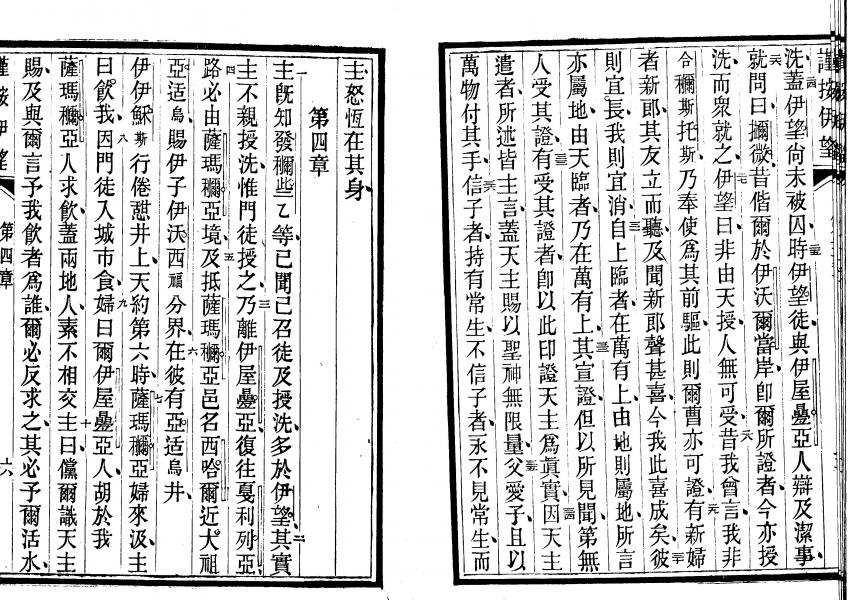 謹按伊望
洗蓋伊望尙未被囚時伊望徒與伊屋疊亞人辯及潔事
就問曰擟微昔偕爾於伊沃爾當岸卽爾所證者今亦授
洗而衆就之伊望曰非由天授人無可受昔我曾言我非
合穪斯托斯乃奉使爲其前驅此則爾曹亦可證有新婦
者新郎其友立而聽及聞新郎聲甚喜今我此喜成矣彼
則宜長我則宜消自上臨者在萬有上由地則屬地所言
亦屬地由天臨者乃在萬有上其宣證但以所見聞第無
人受其證有受其證者卽以此印證天主爲眞實因天主
遣者所述皆主言蓋天主賜以聖神無限量父愛子且以
萬物付其手信子者持有常生不信子者永不見常生而
主怒恆在其身
第四章
主旣知發穪些乙等已聞已召徒及授洗多於伊望其實
主不親授洗惟門徒授之乃離伊屋疊亞復往戛利列亞
路必由薩瑪穪亞境及抵薩瑪穪亞邑名西哈爾近大祖
亞适烏賜伊子伊沃西福分界在彼有亞适烏井
伊伊穌斯行倦憇井上天約第六時薩瑪穪亞婦來汲主
曰飲我因門徒入城市食婦曰爾伊屋疊亞人胡於我
薩瑪穪亞人求飲蓋兩地人素不相交主曰儻爾識天主
賜及與爾言予我飲者爲誰爾必反求之其必予爾活水
謹按伊望
第四章
六